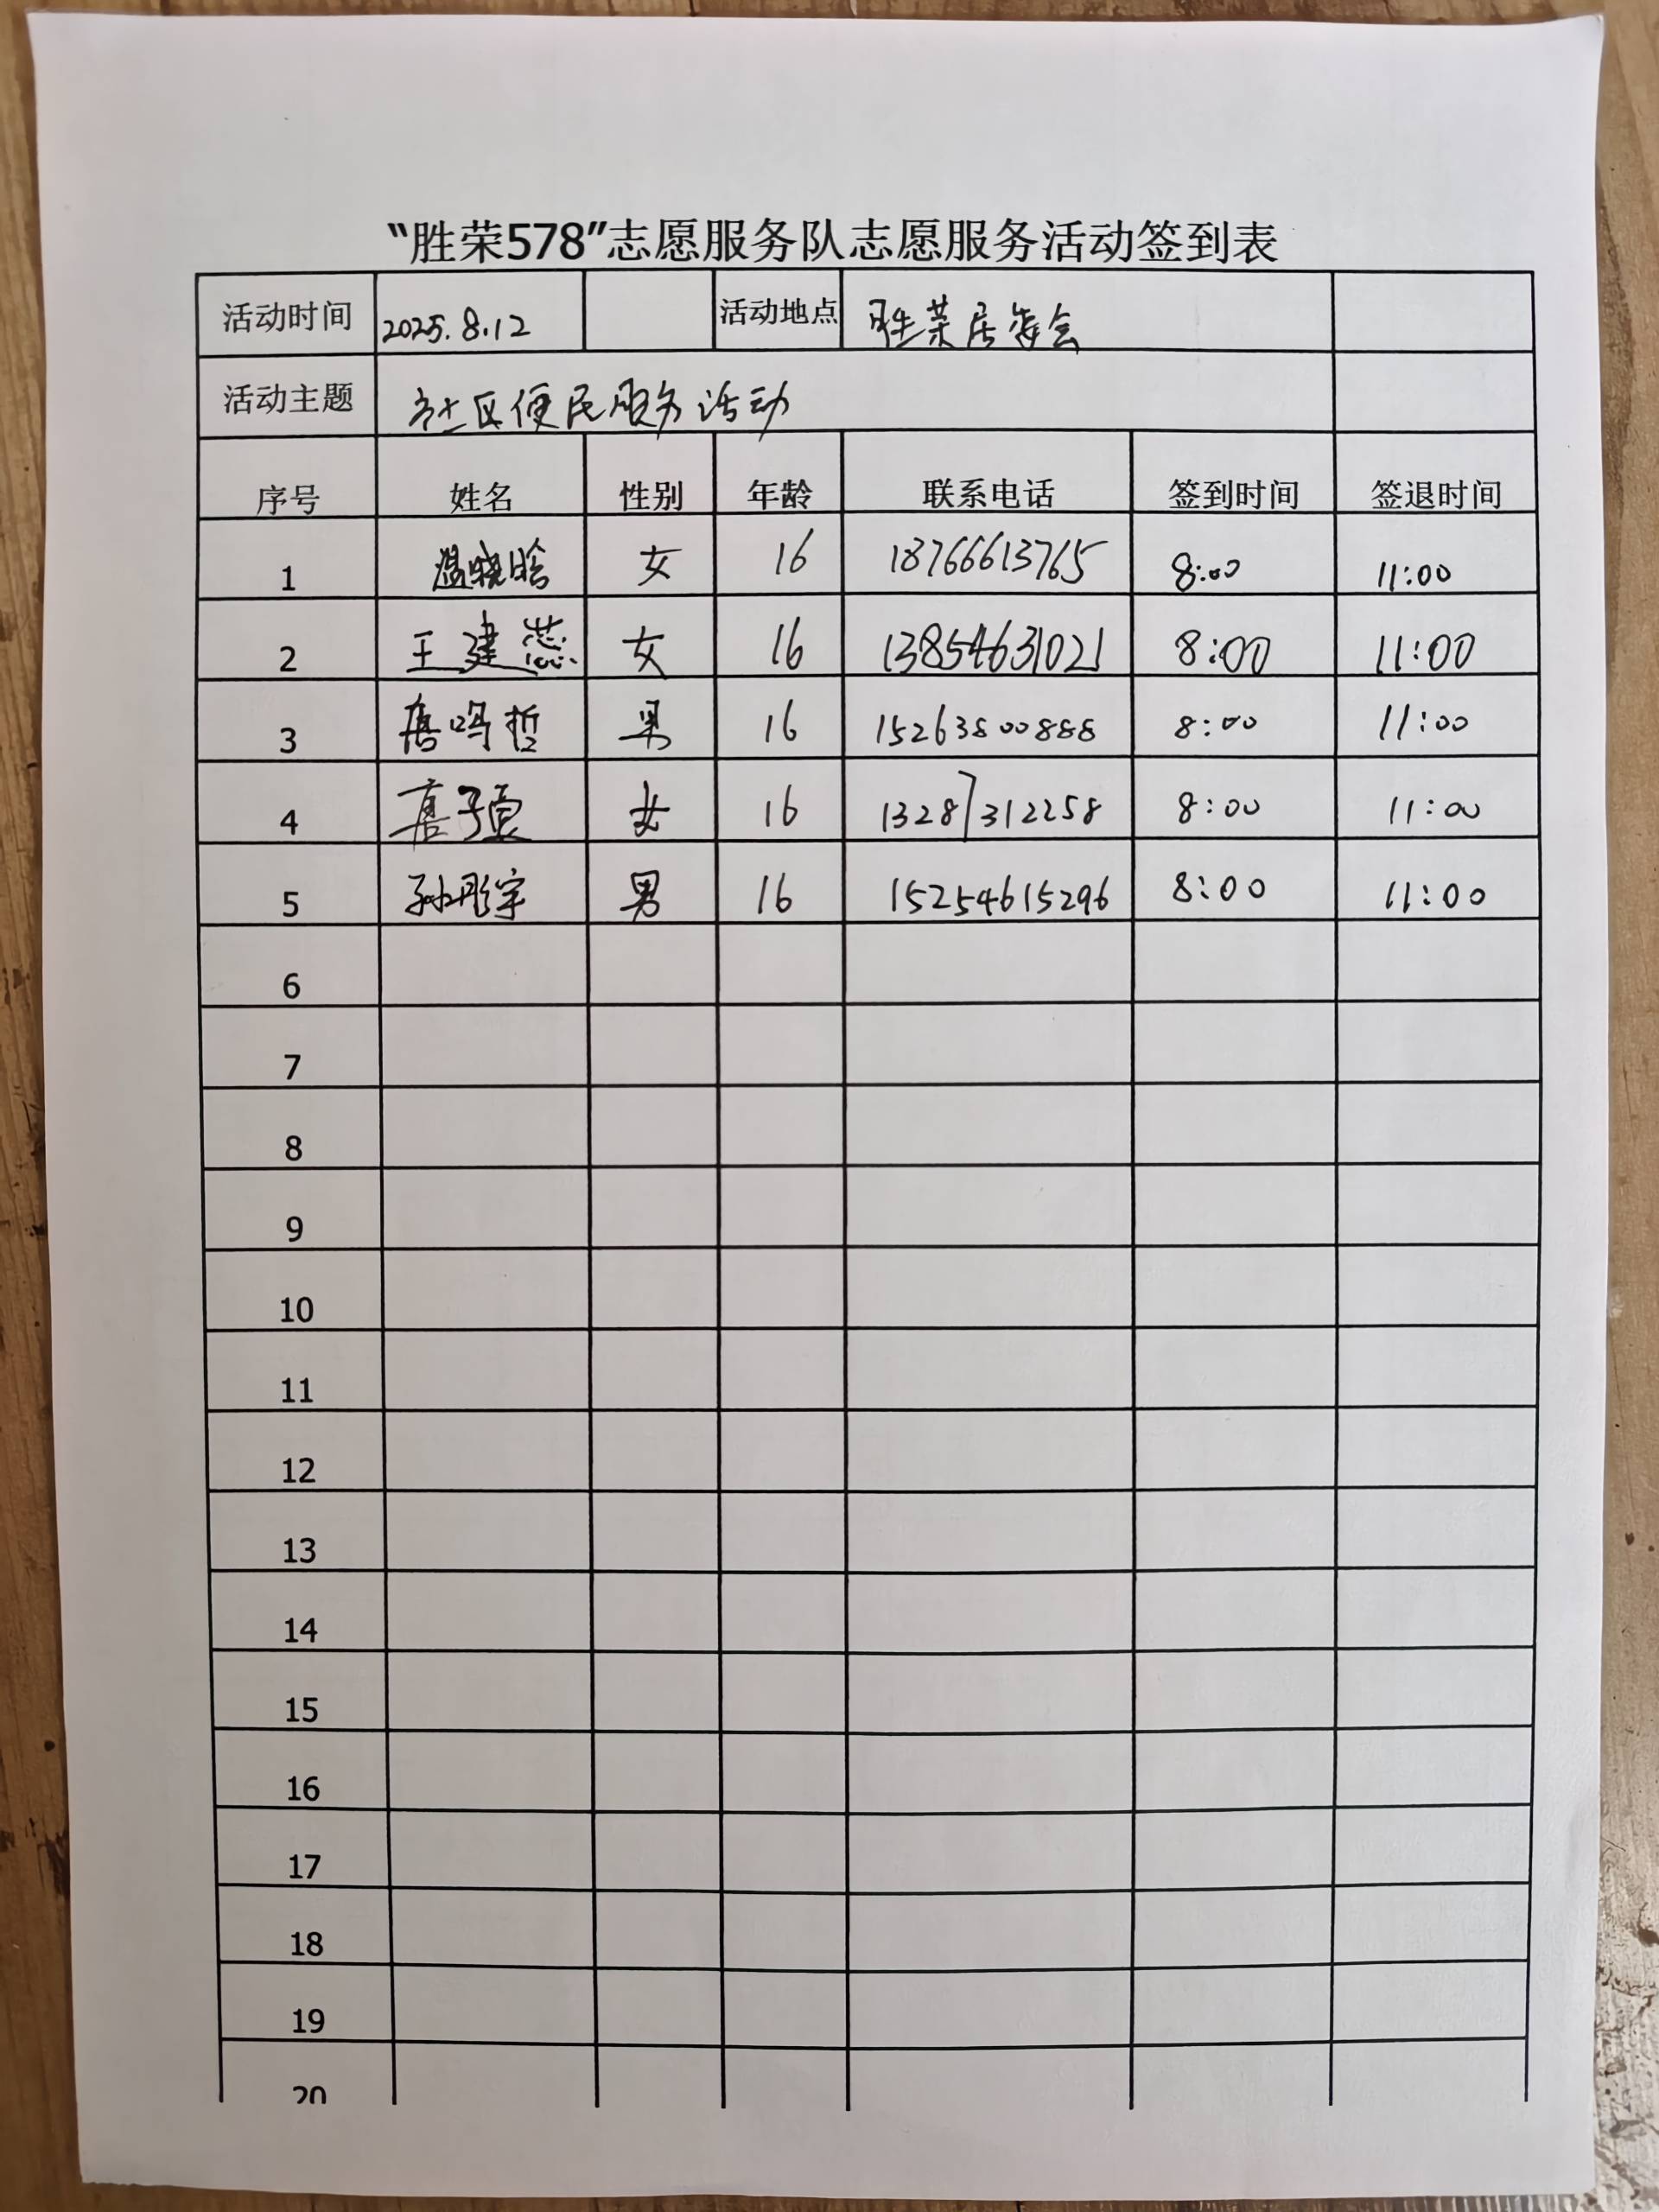 “胜荣578”志愿服务队志愿服务活动签到表
活动时间 2025.8.12 活动地点 胜荣居委会
活动主题 社区便民服务活动
序号 姓名 性别 年龄 联系电话 签到时间 签退时间
1 温晓晗 女 16 18766613765 8:00 11:00
2 王建蕊 女 16 13854631021 8:00 11:00
3 唐鸣哲 男 16 15263800888 8:00 11:00
4 唐子 女 16 13287312258 8:00 11:00
5 孙彤宇 男 16 15254615296 8:00 11:00
6
7
8
9
10
11
12
13
14
15
16
17
18
19
20